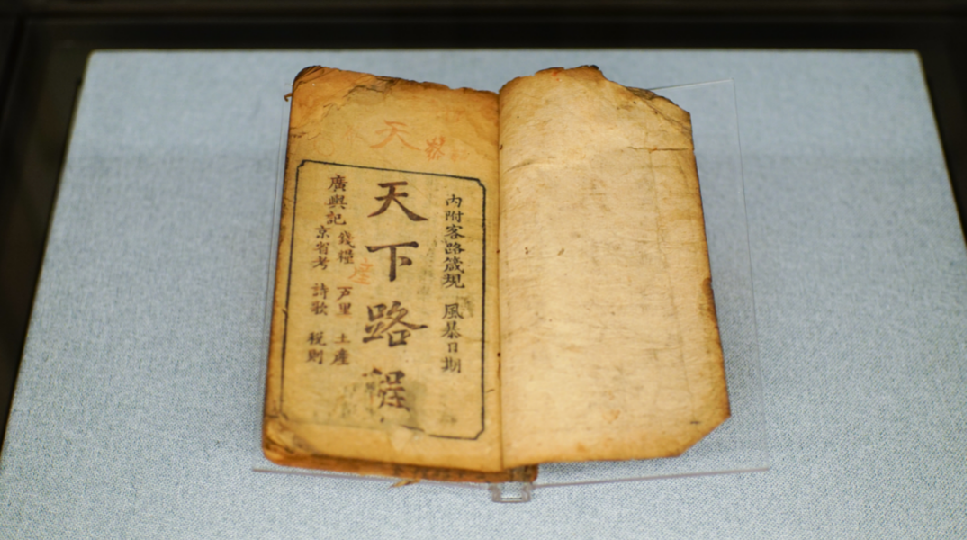 天
內附客路箴規 風暴日期
天下路程
廣輿記
錢糧 戶里 土產
京省考 詩歌 稅則